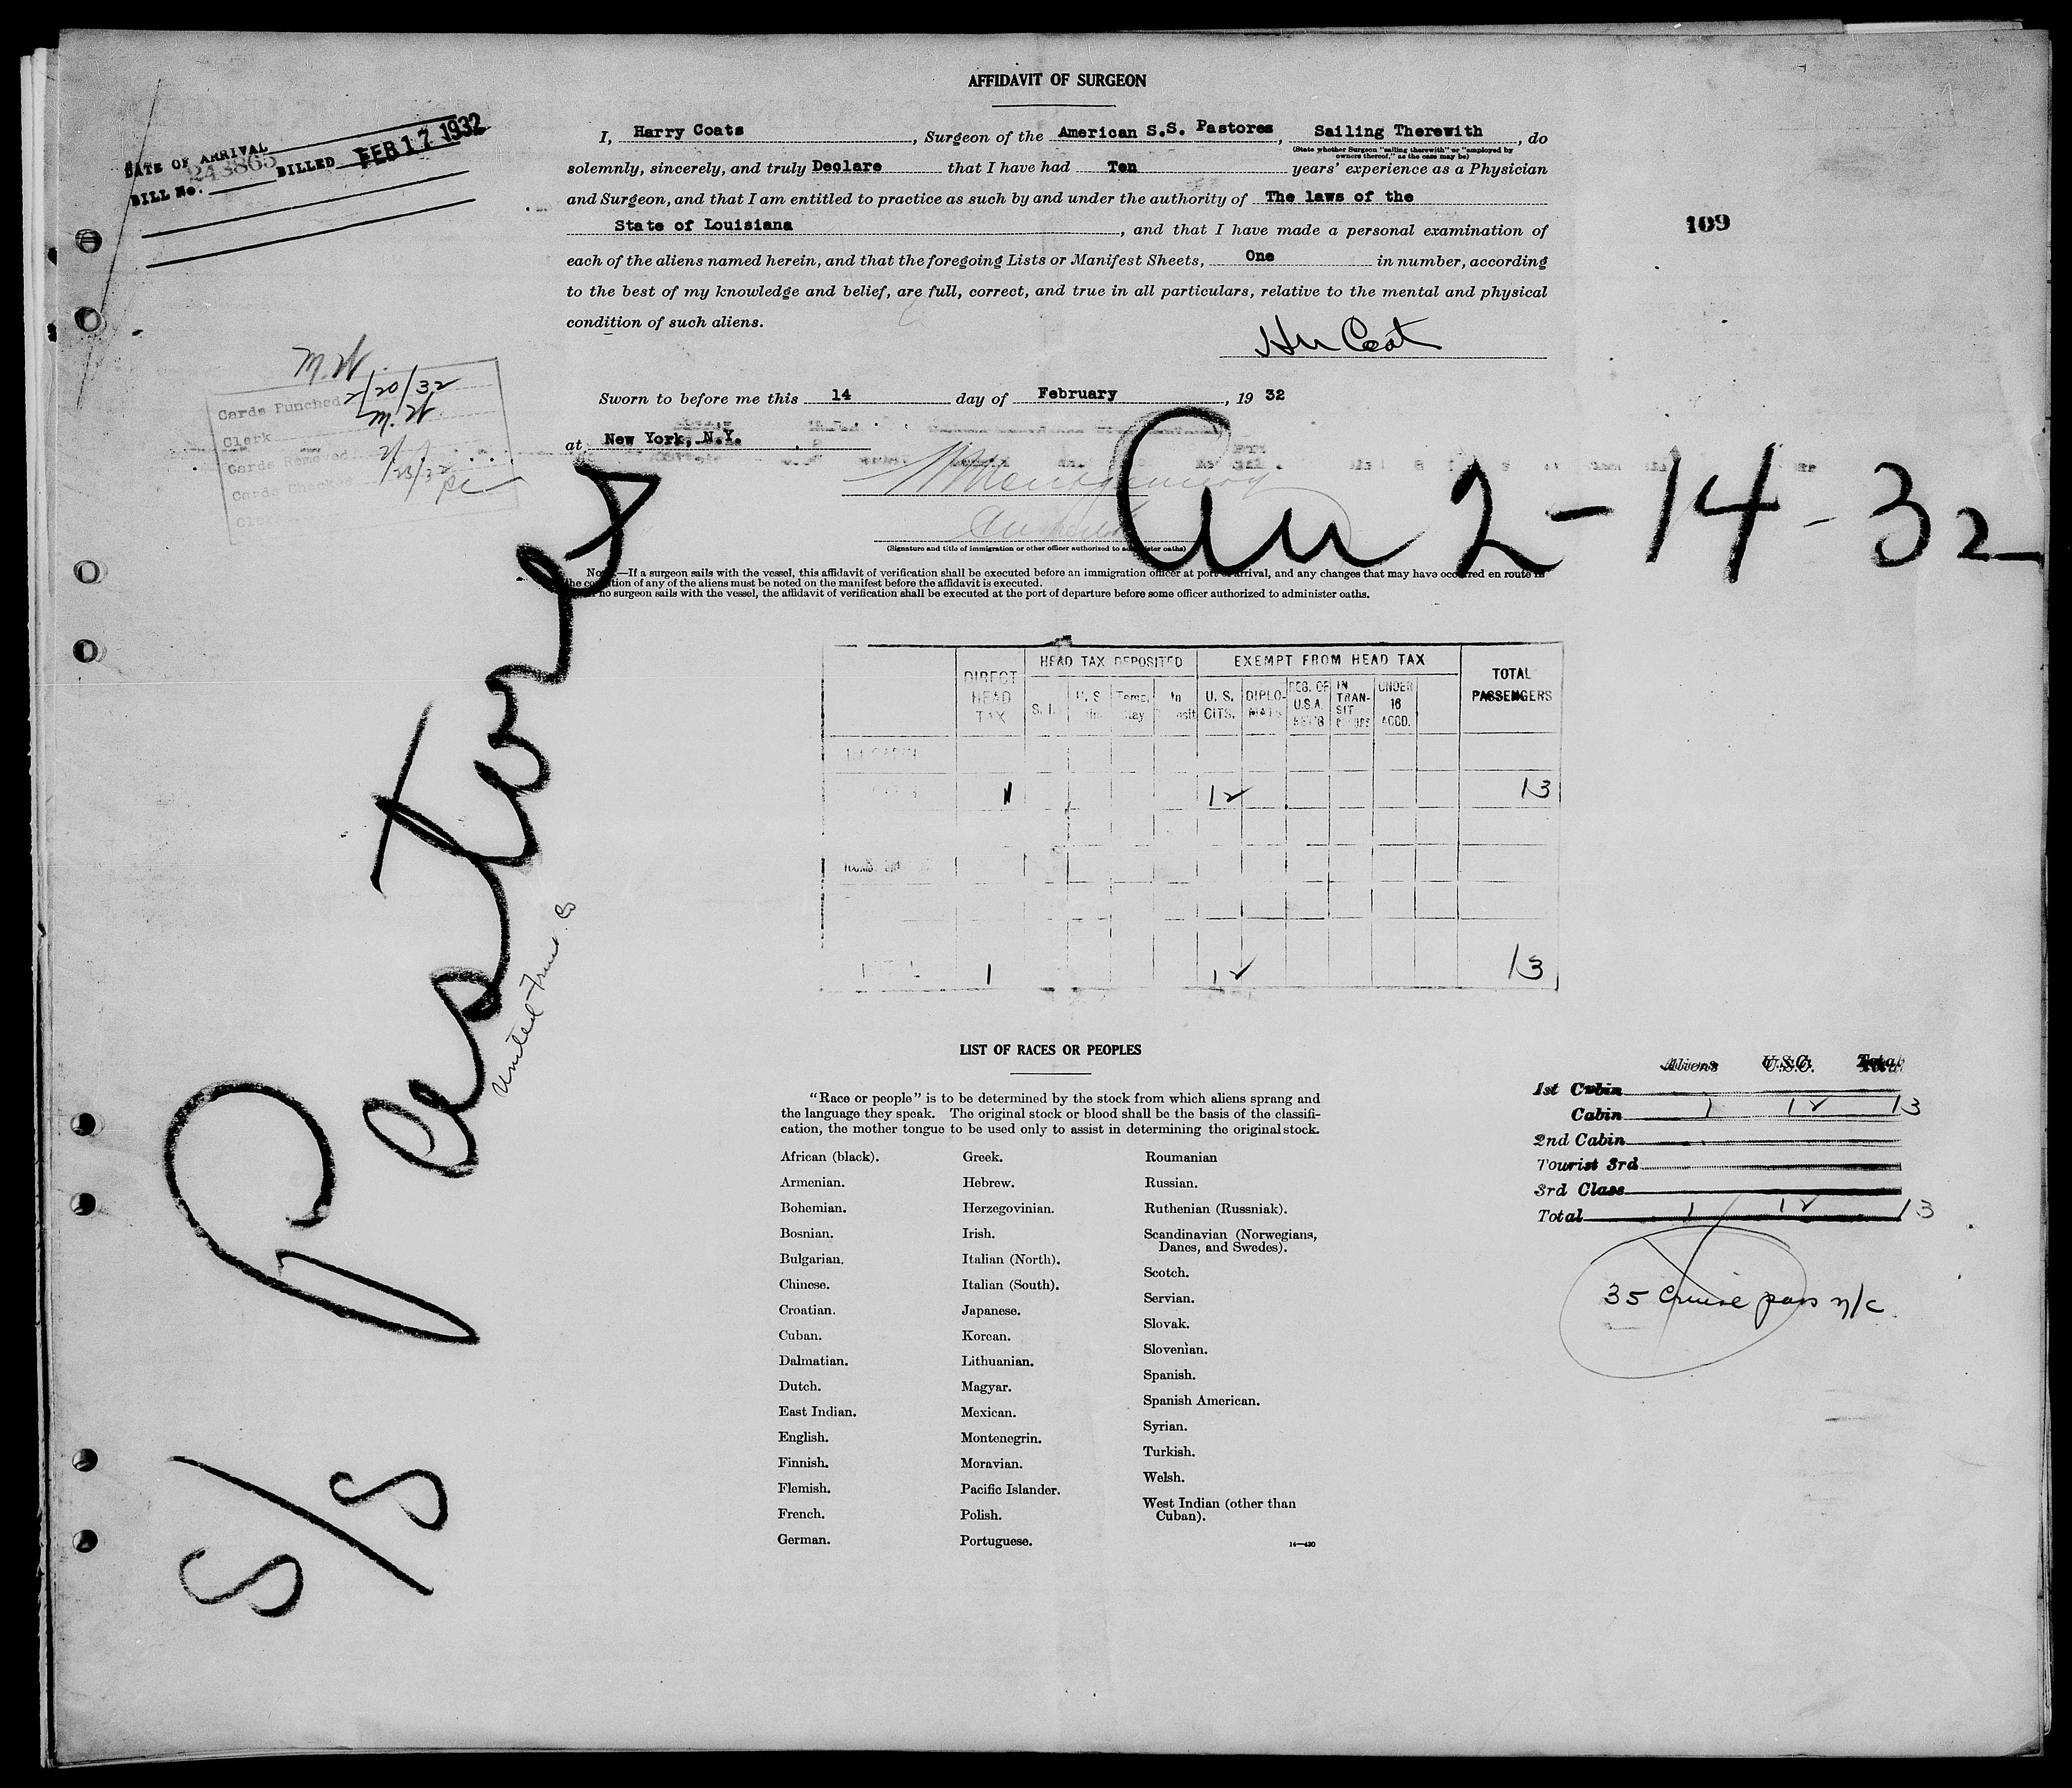 AFFIDAVIT OF SURGEON
I, Harry Coats, Surgeon of the American S.S. Pastores, Sailing Therewith, do
(State whether Surgeon "sailing therewith" or "employed by
owners thereof," as the case may be)
solemnly, sincerely, and truly Declare that I have had Ten years' experience as a Physician
and Surgeon, and that I am entitled to practice as such by and under the authority of The laws of the
State of Louisiana, and that I have made a personal examination of
each of the aliens named herein, and that the foregoing Lists or Manifest Sheets, One in number, according
to the best of my knowledge and belief, are full, correct, and true in all particulars, relative to the mental and physical
condition of such aliens.
Sworn to before me this 14 day of February, 19 32
at New York, N.Y.
(Signature and title of immigration or other officer authorized to administer oaths)
NOTE.—If a surgeon sails with the vessel, this affidavit of verification shall be executed before an immigration officer at port of arrival, and any changes that may have occurred en route in
the condition of any of the aliens must be noted on the manifest before the affidavit is executed.
If no surgeon sails with the vessel, the affidavit of verification shall be executed at the port of departure before some officer authorized to administer oaths.
DATE OF ARRIVAL
BILL No. 243865 BILLED FEB 17 1932
109
M.W.
Cards Punched 2/20/32
Clerk M.W.
Cards Removed
Cards Checked
Arr 2-14-32
S/S Pastores
United Fruit Co
DIRECT HEAD TAX
HEAD TAX DEPOSITED
EXEMPT FROM HEAD TAX
TOTAL PASSENGERS
S. I.
U. S.
Temp. Stay
In Transit
U. S. CITS.
DIPLO-MATS
RES. OF U.S.A.
IN TRAN-SIT
UNDER 16 ACCD.
1st CABIN
1 12 13
1 12 13
LIST OF RACES OR PEOPLES
"Race or people" is to be determined by the stock from which aliens sprang and
the language they speak. The original stock or blood shall be the basis of the classifi-
cation, the mother tongue to be used only to assist in determining the original stock.
African (black).
Armenian.
Bohemian.
Bosnian.
Bulgarian.
Chinese.
Croatian.
Cuban.
Dalmatian.
Dutch.
East Indian.
English.
Finnish.
Flemish.
French.
German.
Greek.
Hebrew.
Herzegovinian.
Irish.
Italian (North).
Italian (South).
Japanese.
Korean.
Lithuanian.
Magyar.
Mexican.
Montenegrin.
Moravian.
Pacific Islander.
Polish.
Portuguese.
Roumanian
Russian.
Ruthenian (Russniak).
Scandinavian (Norwegians,
Danes, and Swedes).
Scotch.
Servian.
Slovak.
Slovenian.
Spanish.
Spanish American.
Syrian.
Turkish.
Welsh.
West Indian (other than
Cuban).
14—430
Aliens U.S.C. Total
1st Cabin
Cabin 1 12 13
2nd Cabin
Tourist 3rd
3rd Class
Total 1 12 13
35 Cruise pass n/c